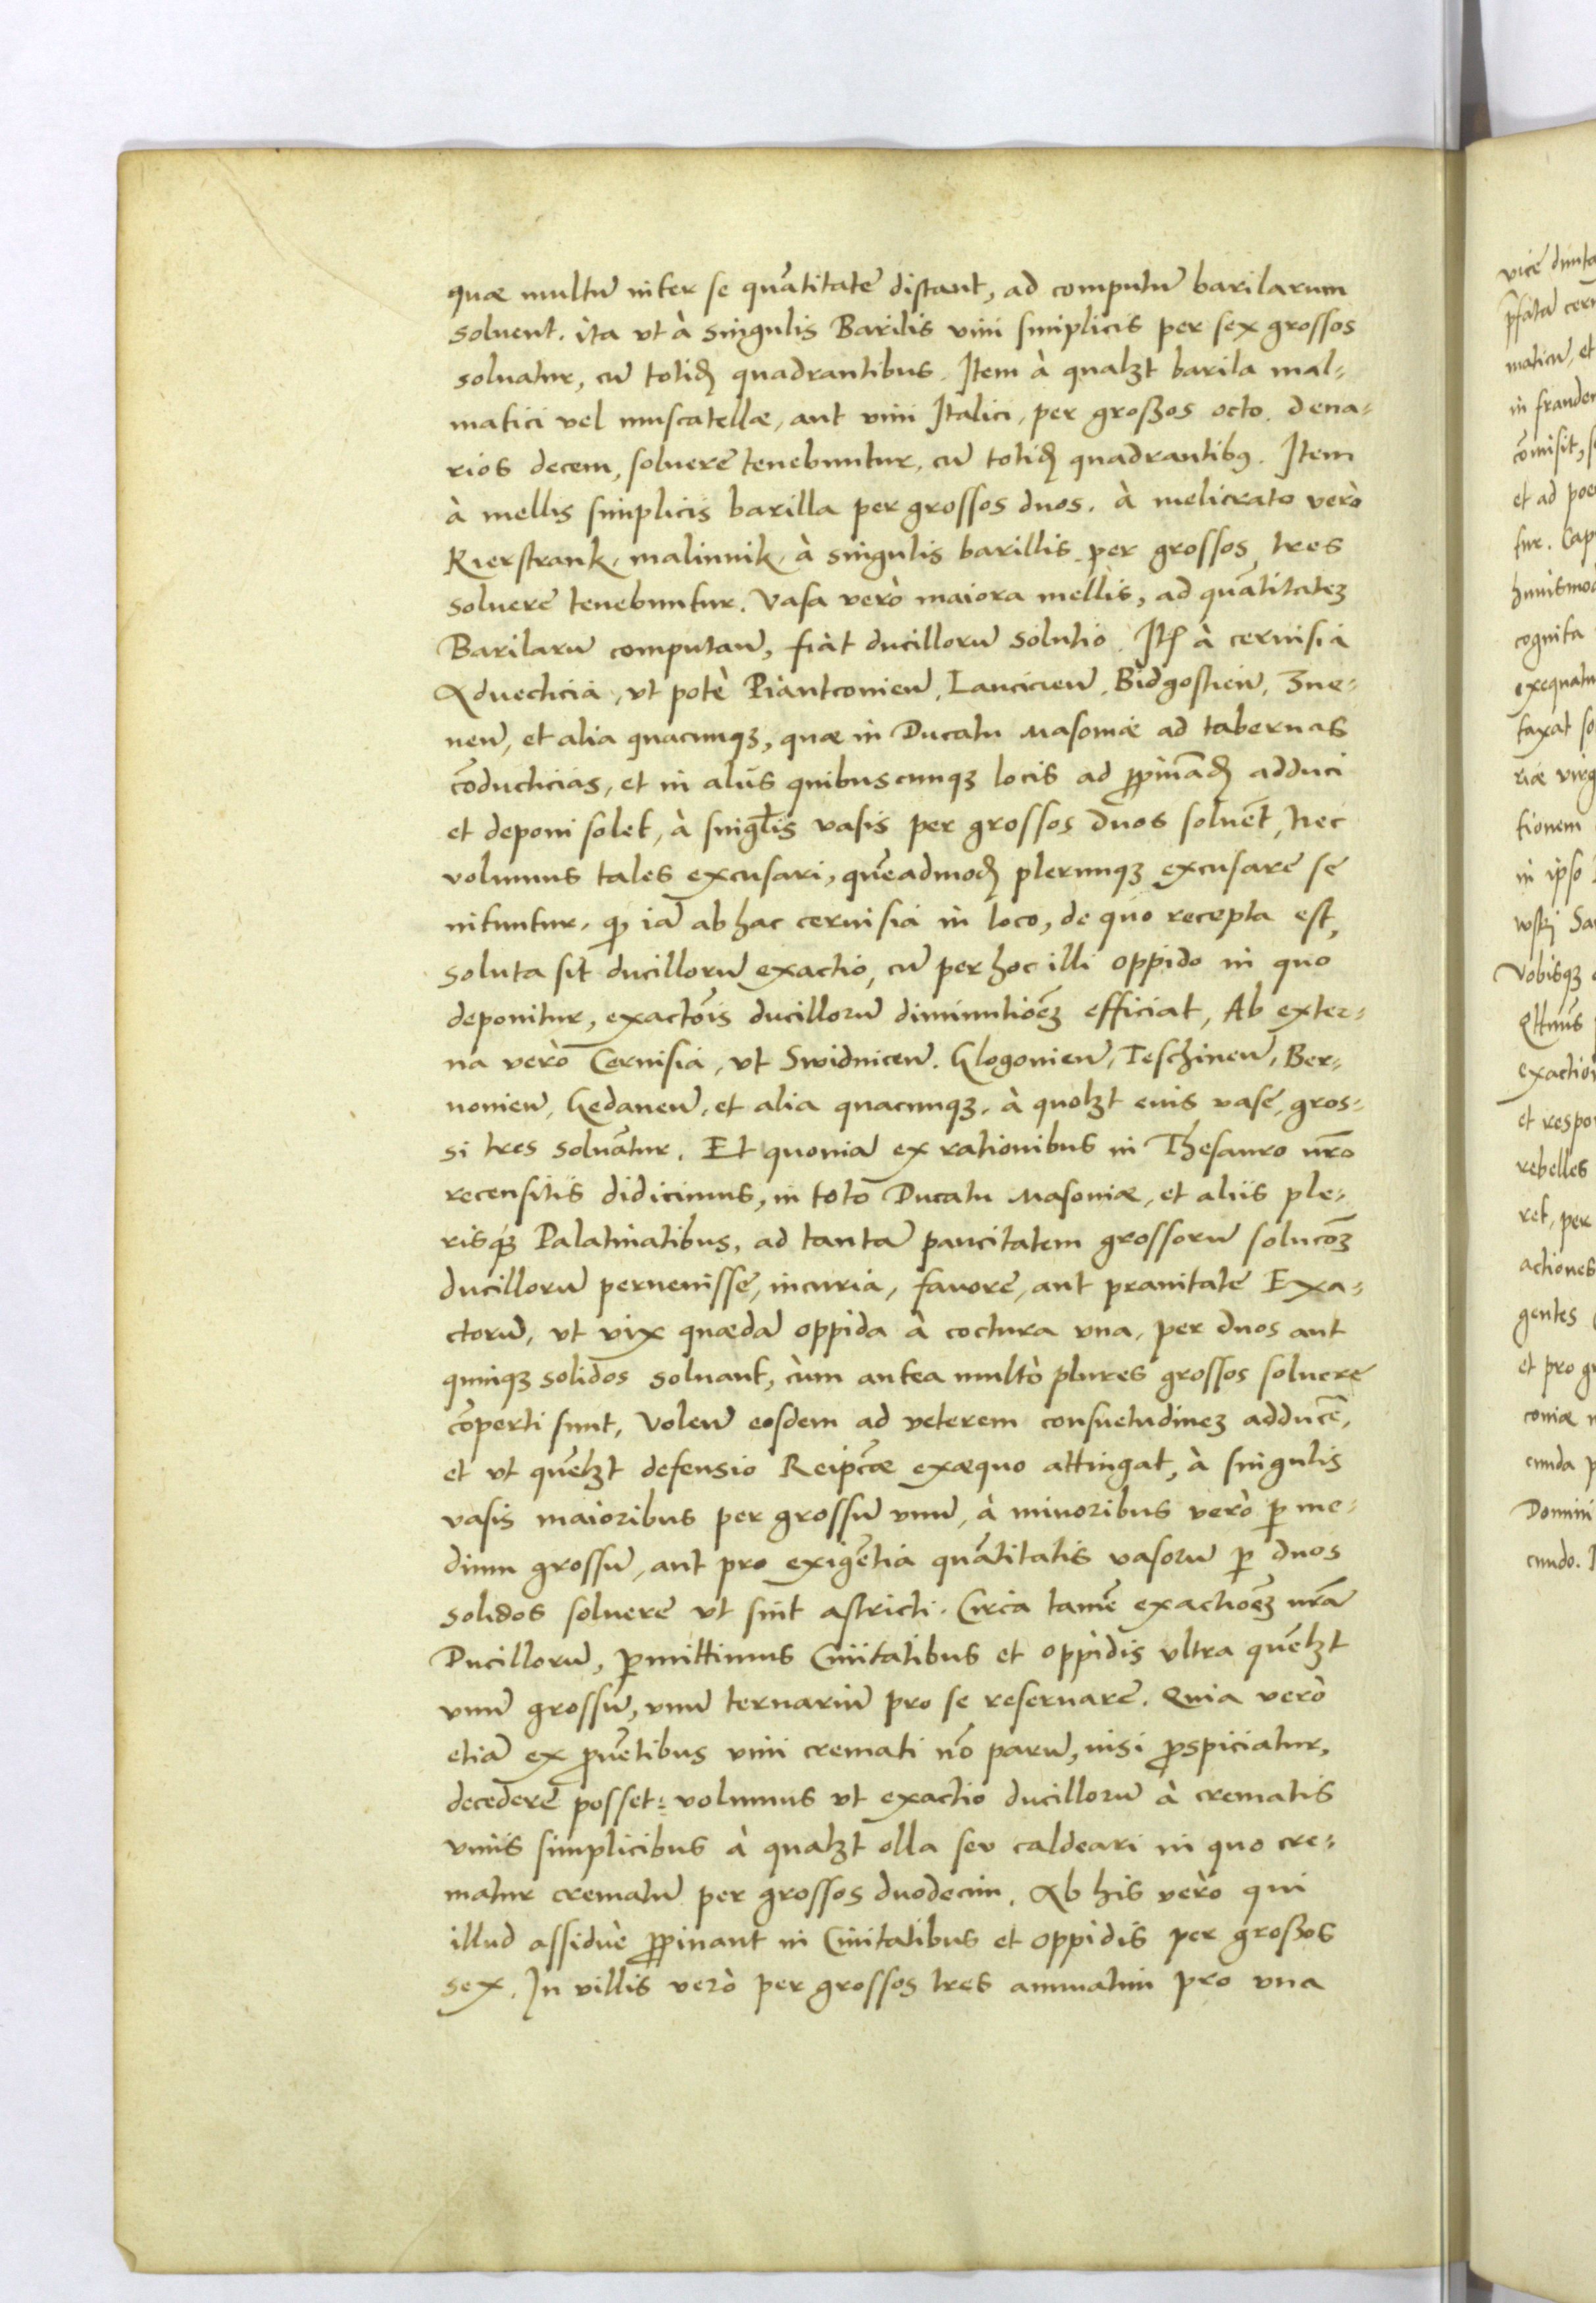 quæ multũ inter se quãtitate distant, ad computũ barilarum
soluent. ita vt à singulis Barilis vini simplicis per sex grossos
soluatur, cũ totiđ quadrantibus. Item à qualꝫt barila mal-
matici vel muscatellæ, aut vini Italici, per großos octo. dena-
rios decem, soluere tenebuntur, cũ totiđ quadrantibꝯ. Item
à mellis simplicis barilla per grossos duos. à melicrato verò
Kierstrank, malinnik, à singulis barillis per grossos tres
soluere tenebuntur. Vasa verò maiora mellis, ad quãtitateꝫ
Barilarũ computañ, fiat ducillorũ solutio. Itꝫ à ceruisia
Aduecticia, vt potè Piantconieñ, Lancicieñ, Bidgostieñ, Zne-
neñ, et alia quacunqꝫ, quæ in Ducatu Masoviæ ad tabernas
cõducticias, et in alijs quibuscunqꝫ locis ad ꝓpinãđ adduci
et deponi solet, à singłis vasis per grossos duos soluẽt, Nec
volumus tales excusari, quẽadmođ plerunqꝫ excusare se
nituntur, ꝙ iã ab hac ceruisia in loco, de quo recepta est,
soluta sit ducillorũ exactio, cũ per hoc illi oppido in quo
deponitur, exactõis ducillorũ diminutiõeꝫ efficiat, Ab exter-
na verò Ceruisia, vt Swidniceñ. Glogonieñ, Teschineñ, Ber-
nonieñ, Gedaneñ, et alia quacunqꝫ, à quolꝫt eius vase, gros-
si tres soluãtur. Et quoniã ex rationibus in Thesauro nr̃o
recensitis didicimus, in toto Ducatu Masoviæ, et aliis ple-
risqꝫ Palatinatibus, ad tantã paucitatem grossorũ solucõeꝫ
ducillorũ peruenisse, incuria, fauore, aut prauitate Exa-
ctorũ, vt vix quædã oppida à coctura vna, per duos aut
quinqꝫ solidos soluant, cùm antea multò plures grossos soluere
cõperti sunt, Voleñ eosdem ad veterem consuetudineꝫ adducẽ,
et vt quẽlꝫt defensio Reipcæ exæquo attingat, à singulis
vasis maioribus per grossũ vnũ, à minoribus verò ꝑ me-
dium grossũ, aut pro exigẽtia quãtitatis vasorũ ꝑ duos
solidos soluere vt sint astricti. Circa tamẽ exactiõeꝫ nr̃ã
Ducillorũ, ꝑmittimus Ciuitatibus et oppidis vltra quẽlꝫt
vnũ grossũ, vnũ ternariũ pro se reseruare. Quia verò
etiã ex ꝓuẽtibus vini cremati nõ parũ, nisi ꝓspiciatur,
decedere posset: volumus vt exactio ducillorũ à crematis
vinis simplicibus à qualꝫt olla seu caldeari in quo cre-
matur crematũ per grossos duodecim. Ab his verò qui
illud assiduè ꝓpinant in Ciuitatibus et oppidis per großos
sex. In villis verò per grossos tres annuatim pro vna